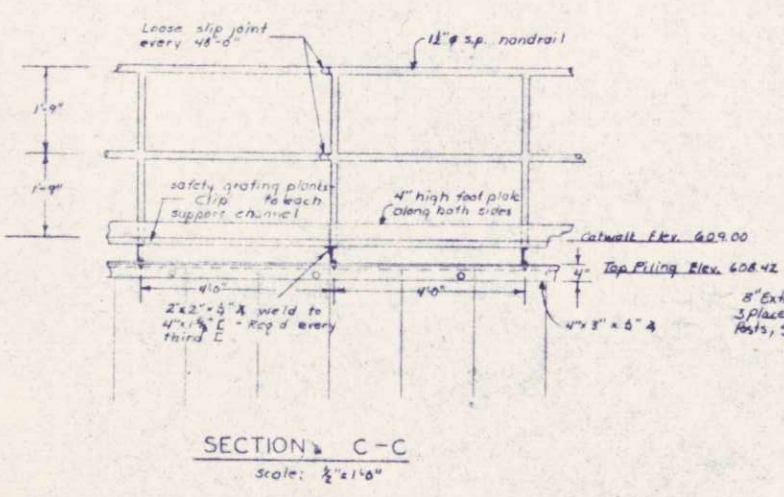 Loose slip joint
every 48'-0"
1½" ø s.p. handrail
1'-9"
1'-9"
safety grating planks
Clip to each
support channel
4" high foot plate
along both sides
Catwalk Elev. 609.00
4"
Top Piling Elev. 608.42
4'-0"
4'-0"
8" Ext
3 Place
Posts, S
2"x2"x
weld to
Req'd every
third [
4"x3"x
SECTION C-C
scale: ½"=1'-0"